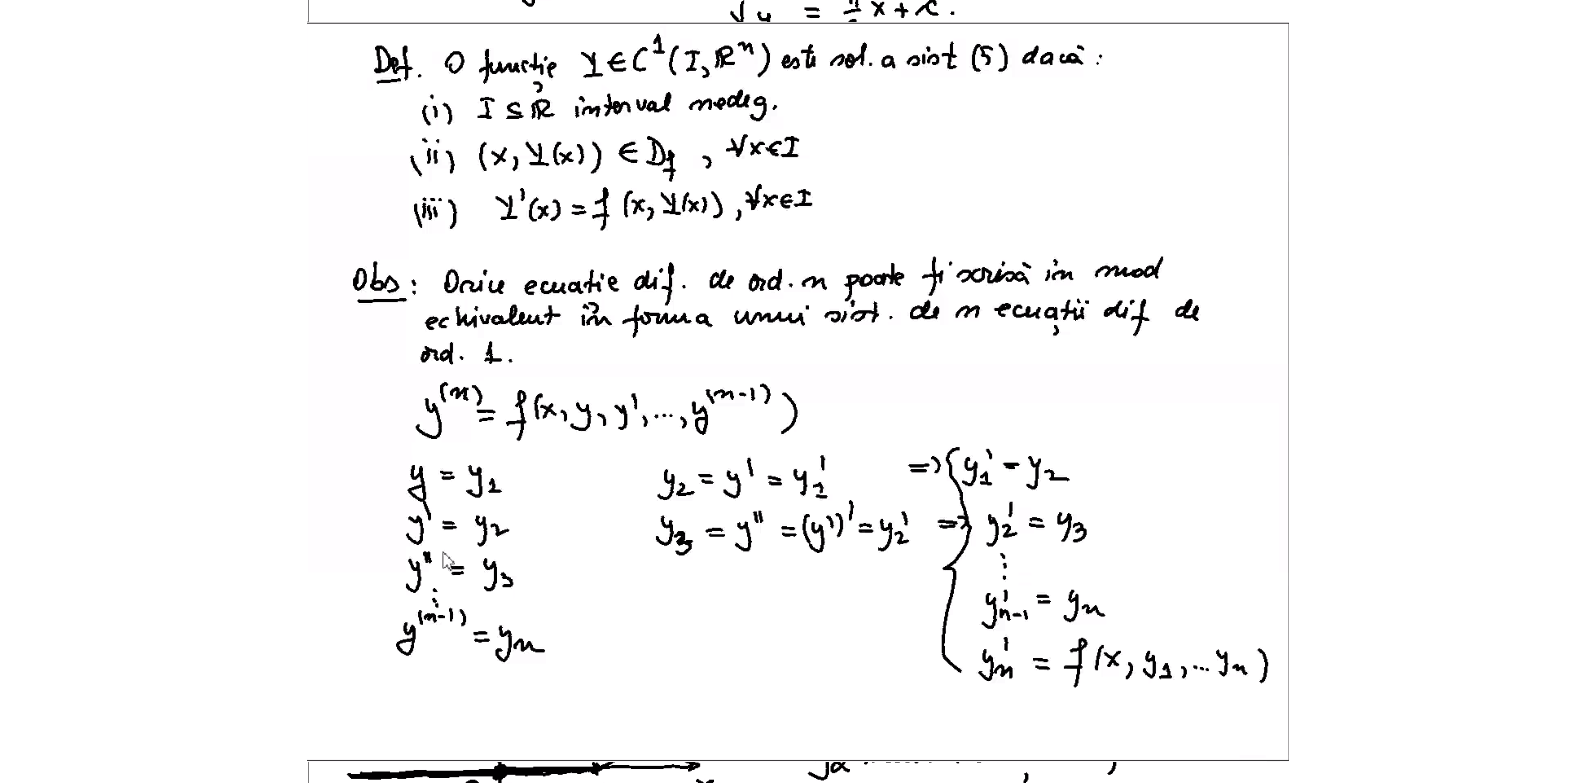 √y = x + c.
Def. O funcție Y ∈ C¹(I, ℝⁿ) este sol. a sist (5) dacă :
(i) I ⊆ ℝ interval nedeg.
(ii) (x, Y(x)) ∈ D_f , ∀x∈I
(iii) Y'(x) = f(x, Y(x)), ∀x∈I
Obs : Orice ecuatie dif. de ord. n poate fi scrisă în mod
echivalent în forma unui sist. de n ecuații dif de
ord. 1.
y⁽ⁿ⁾ = f(x, y, y', ..., y⁽ⁿ⁻¹⁾)
y = y₁ y₂ = y' = y₁' => { y₁' = y₂
y' = y₂ y₃ = y'' = (y')' = y₂' => y₂' = y₃
y'' = y₃ ⋮
⋮ y'ₙ₋₁ = yₙ
y⁽ⁿ⁻¹⁾ = yₙ yₙ' = f(x, y₁, ... yₙ)